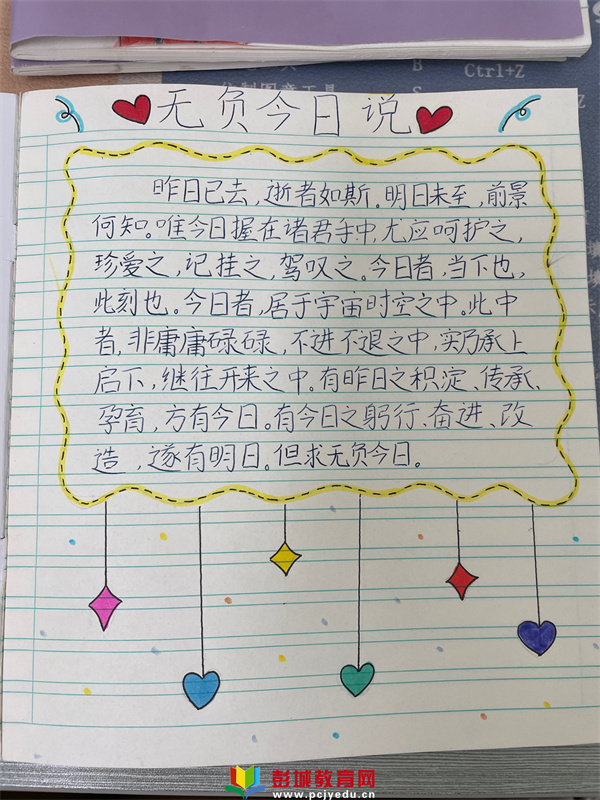 B
Ctrl+Z
S
无负今日说
昨日已去，逝者如斯。明日未至，前景
何知。唯今日握在诸君手中，尤应呵护之，
珍爱之，记挂之，驾叹之。今日者，当下也，
此刻也。今日者，居于宇宙时空之中。此中
者，非庸庸碌碌，不进不退之中，实乃承上
启下，继往开来之中。有昨日之积淀、传承、
孕育，方有今日。有今日之躬行、奋进、改
造，遂有明日。但求无负今日。
彭城教育网
www.pcjyedu.cn